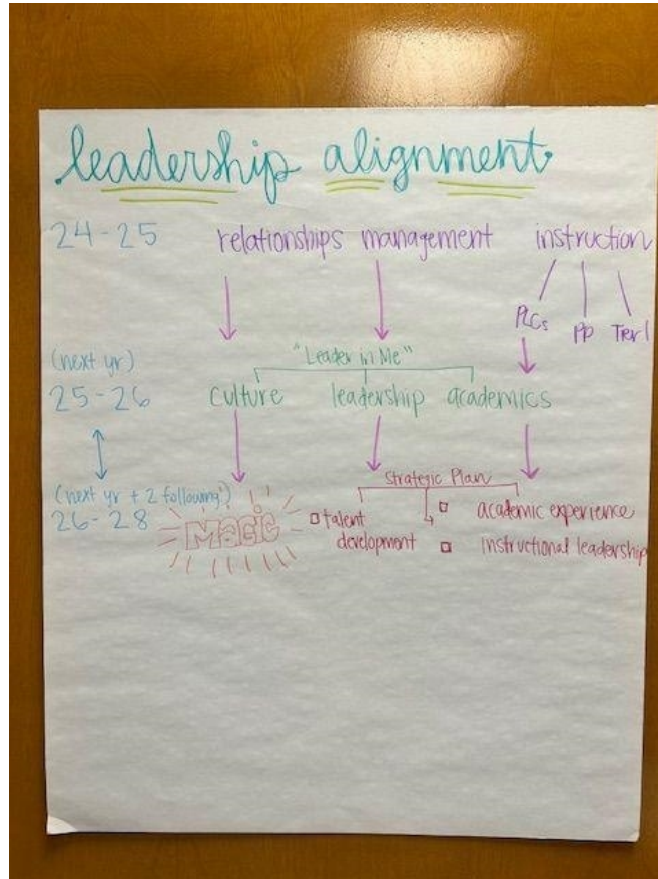 leadership alignment
24-25 relationships management instruction
PLCs PP Tier 1
(next yr) "Leader in Me"
25-26 culture leadership academics
Strategic Plan
(next yr + 2 following!)
26-28 Magic talent development academic experience
instructional leadership